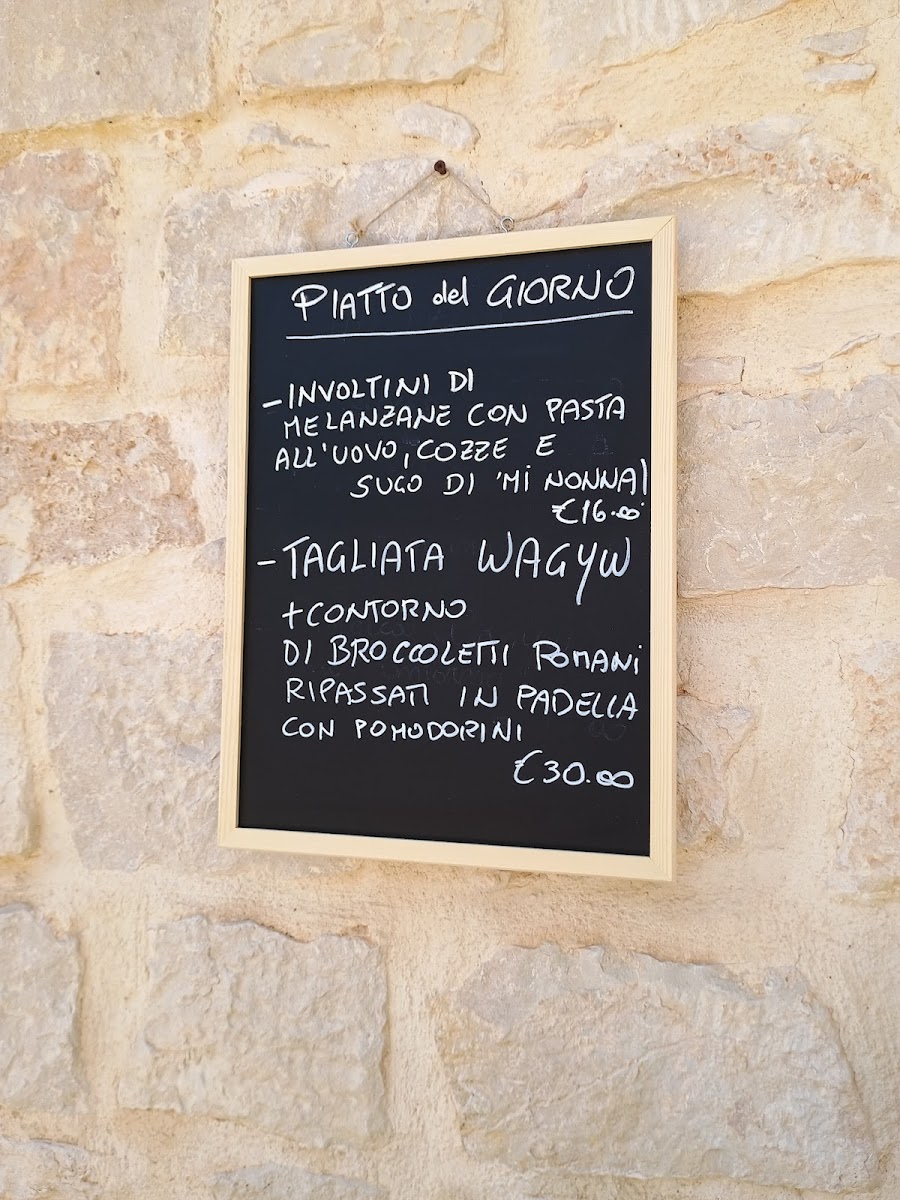 PIATTO del GIORNO
- INVOLTINI DI
MELANZANE CON PASTA
ALL'UOVO, COZZE E
SUGO DI 'MI NONNA!
€16.00
- TAGLIATA WAGYW
+ CONTORNO
DI BROCCOLETTI ROMANI
RIPASSATI IN PADELLA
CON POMODORINI
€30.00